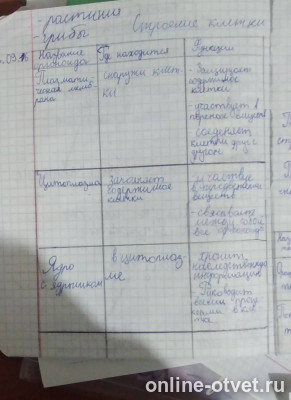 - растения
- грибы
Строение клетки
Название
органоида
Где находится
Функции
Плазмати-
ческая мемб-
рана
снаружи клет-
ки
- Защищает
содержимое
клетки
- участвует в
соеденяет
клетки друг с
другом
Цитоплазма
Заполняет
содержимое
клетки
- участвует
веществ
- связывает
между собой
все органоиды
Ядро
с ядрышком
в цитоплаз-
ме
- хранит
наследственную
информацию
- Руководит
всеми проц
ессами в кле
тка
online-otvet.ru